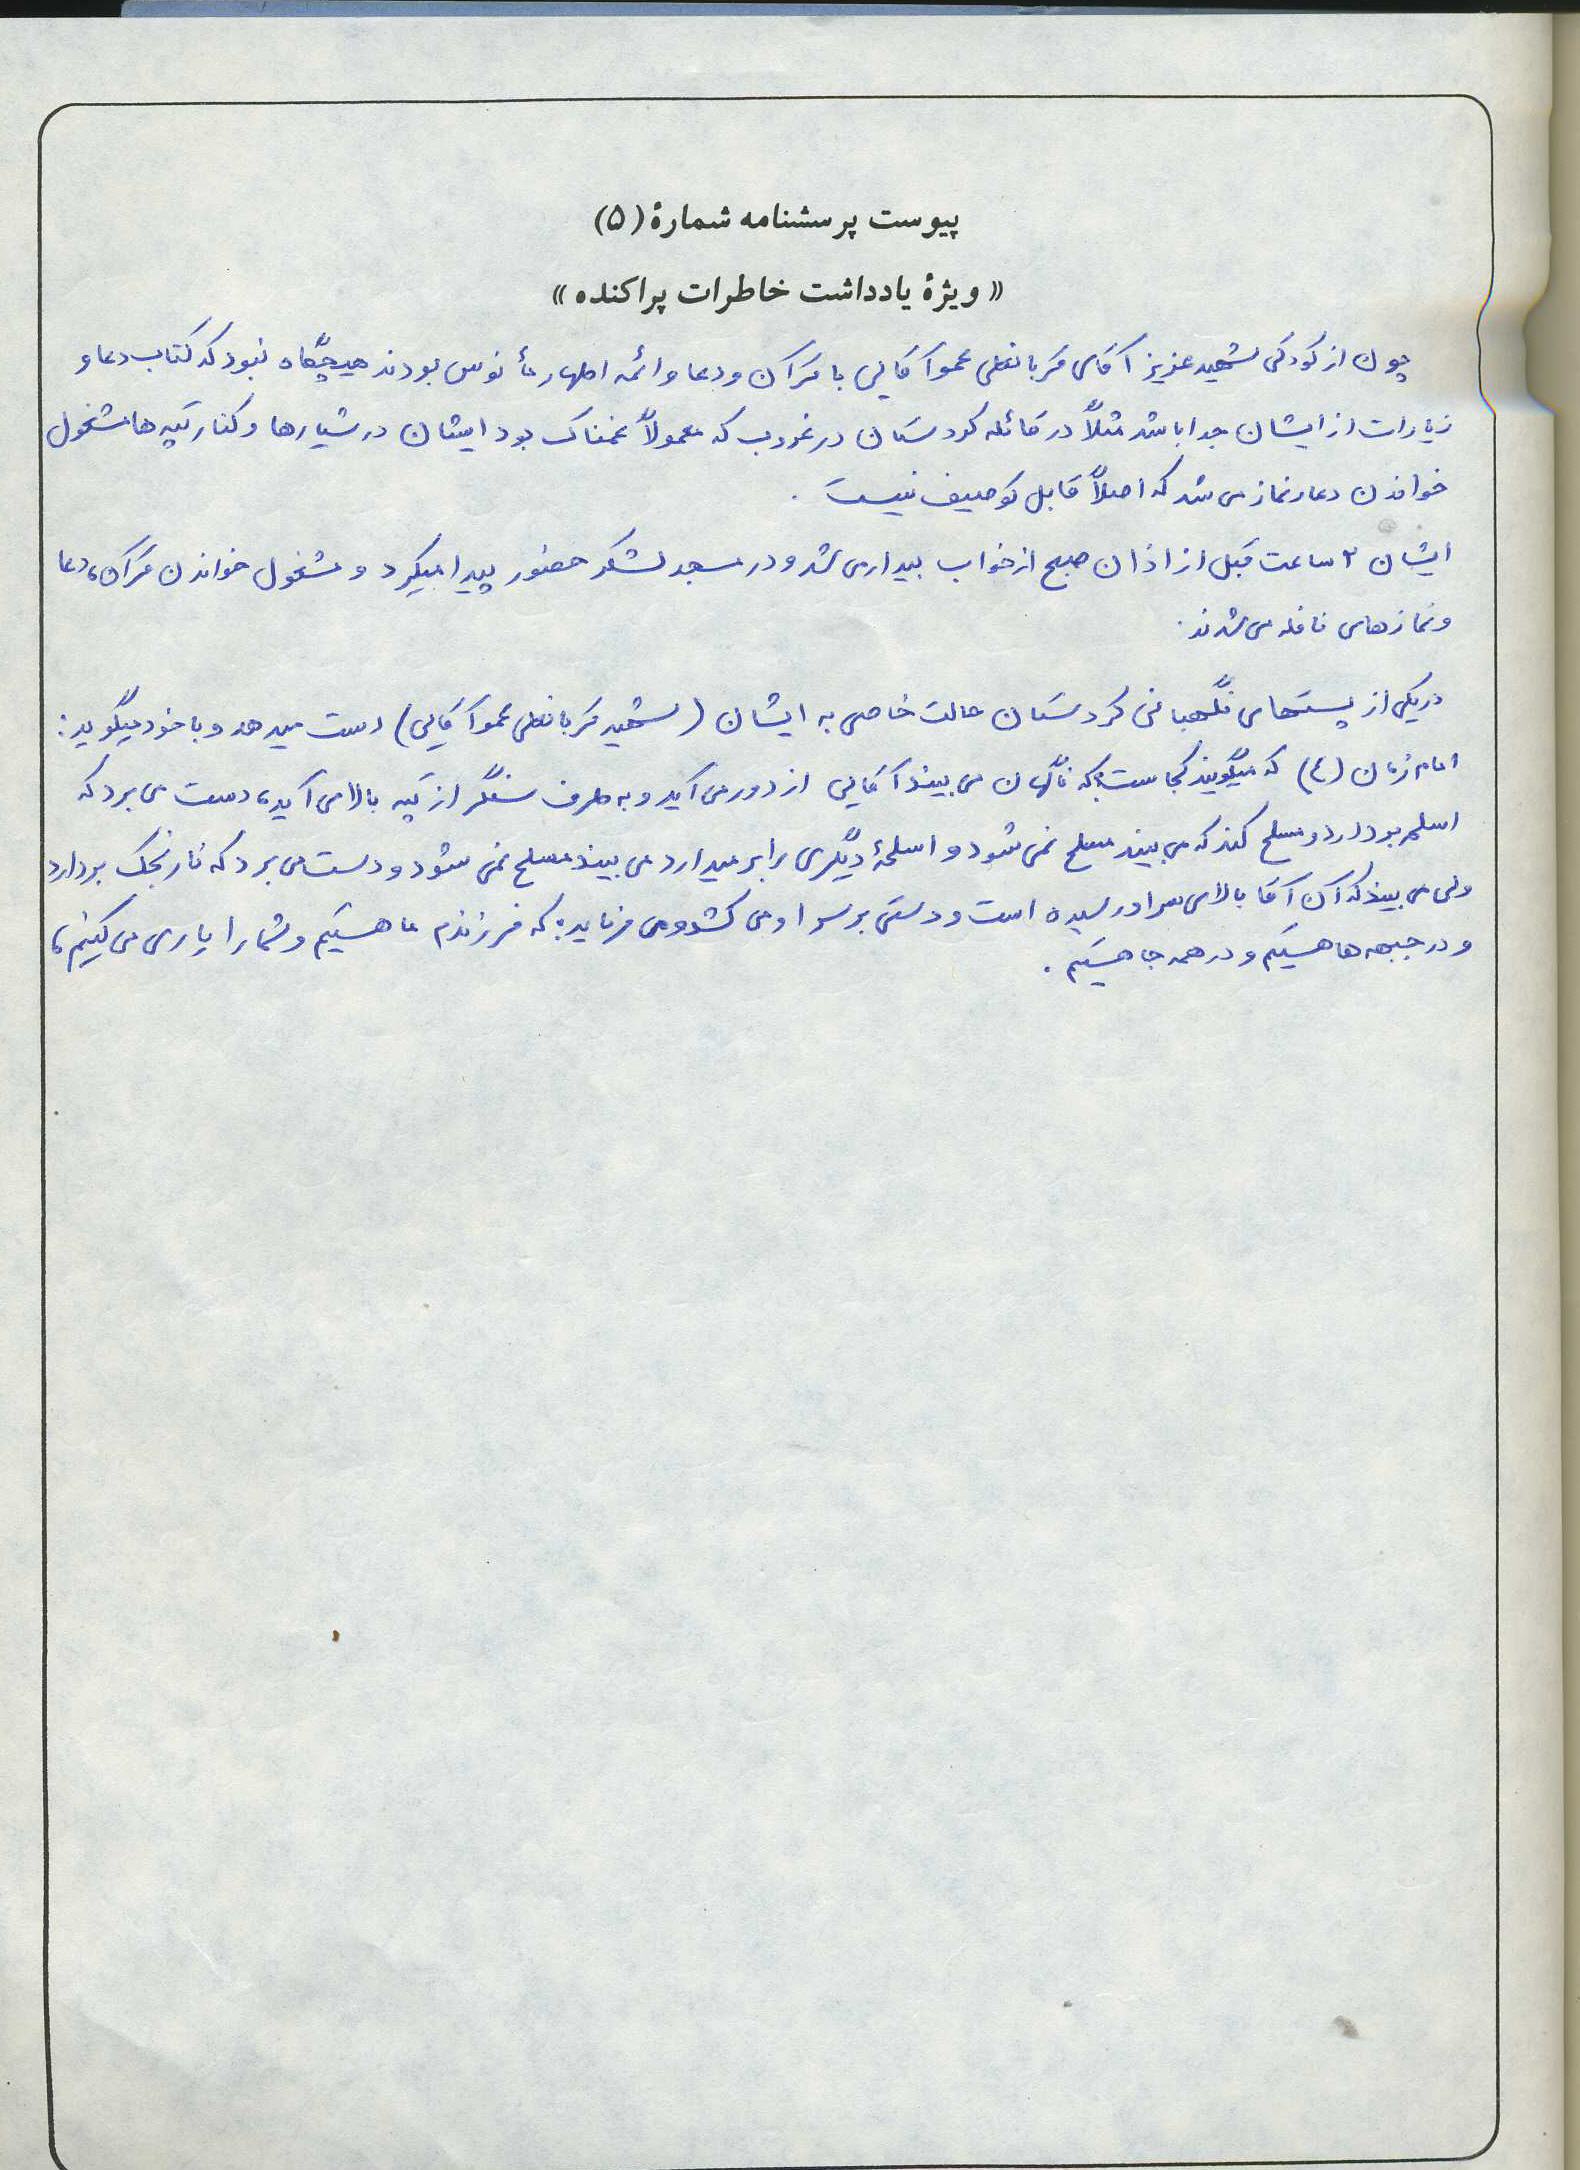 پیوست پرسشنامه شمارهٔ (۵)
« ویژهٔ یادداشت خاطرات پراکنده »
چون از کودکی شهید عزیز آقای قربانعلی عموآقایی با قرآن و دعا و ائمه اطهار مأنوس بودند هیچگاه نبود که کتاب دعا و
زیارات از ایشان جدا باشد مثلاً در قائله کردستان در غروب که معمولاً غمناک بود ایشان در شیارها و کنار تپه ها مشغول
خواندن دعا و نماز می شد که اصلاً قابل توصیف نیست .
ایشان ۲ ساعت قبل از اذان صبح از خواب بیدار می شد و در مسجد لشکر حضور پیدا میکرد و مشغول خواندن قرآن، دعا
و نمازهای نافله می شدند.
در یکی از پستهای نگهبانی کردستان حالت خاصی به ایشان (شهید قربانعلی عموآقایی) دست میدهد و با خود میگوید:
امام زمان (ع) که میگویند کجاست؟ که ناگهان می بیند آقایی از دور می آید و به طرف سنگر از تپه بالا می آید، دست می برد که
اسلحه بردارد و مسلح کند که می بیند مسلح نمی شود و اسلحهٔ دیگری را برمیدارد می بیند مسلح نمی شود و دست می برد که نارنجک بردارد
ولی می بیند که آن آقا بالای سر او رسیده است و دستی بر سر او می کشد و می فرماید: که فرزندم ما هستیم و شما را یاری می کنیم،
و در جبهه ها هستیم و در همه جا هستیم .